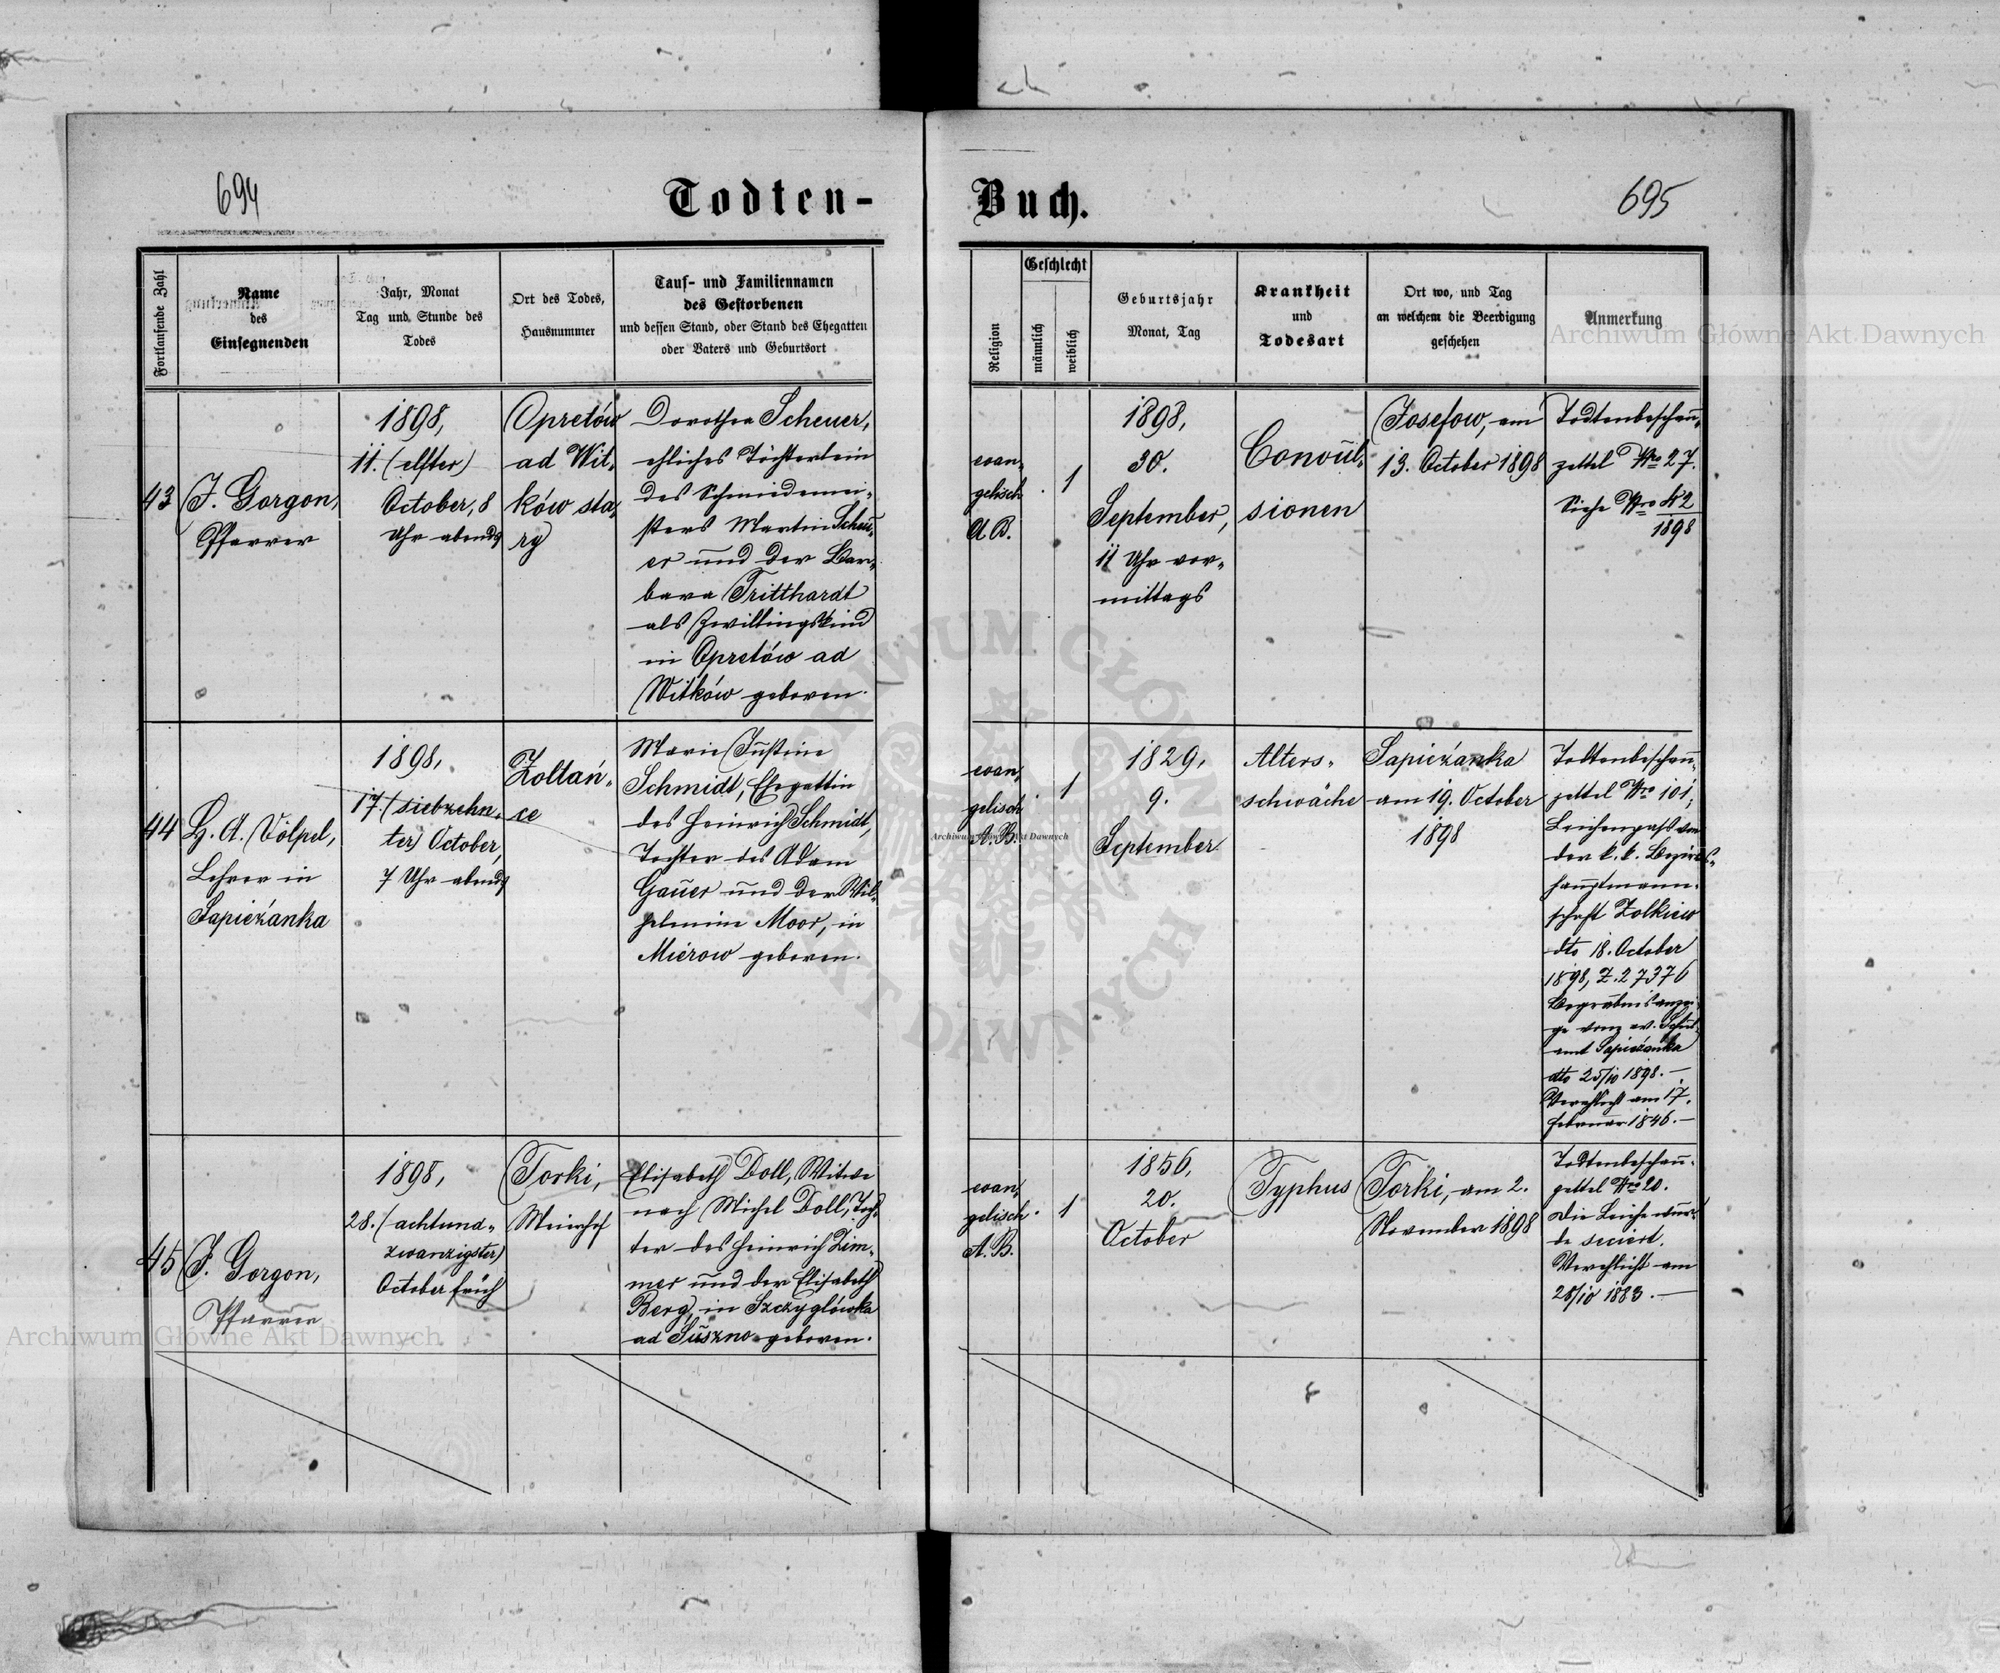 694
Todten-
Buch.
695
Fortlaufende Zahl
Name
des
Einsegnenden
Jahr, Monat
Tag und Stunde des
Todes
Ort des Todes,
Hausnummer
Tauf- und Familiennamen
des Gestorbenen
und dessen Stand, oder Stand des Ehegatten
oder Vaters und Geburtsort
Religion
Geschlecht
männlich
weiblich
Geburtsjahr
Monat, Tag
Krankheit
und
Todesart
Ort wo, und Tag
an welchem die Beerdigung
geschehen
Anmerkung
43
J. Gorgon,
Pfarrer
1898,
11. (elfter)
October, 8
Uhr abends
Opretów
ad Wit-
ków sta-
ry
Dorothea Scheuer,
ehliches Töchterlein
des Schmiedemei-
sters Martin Scheu-
er und der Bar-
bara Tritthardt
als Zwillingskind
in Opretów ad
Witków geboren.
evan-
gelisch
A.B.
1
1898,
30.
September,
11 Uhr vor-
mittags
Convul-
sionen
Josefow, am
13. October 1898
Todtenbeschau-
zettel Nro 27.
Siehe Nro 42
1898
44
H. A. Völpel,
Lehrer in
Sapieżanka
1898,
17. (siebzehn-
ter) October,
7 Uhr abends
Żoltań-
ce
Marie Justine
Schmidt, Ehegattin
des Heinrich Schmidt,
Tochter des Adam
Gauer und der Wil-
helmine Moor, in
Mierow geboren.
evan-
gelisch
A.B.
1
1829,
9.
September
Alters-
schwäche
Sapieżanka
am 19. October
1898
Todtenbeschau-
zettel Nro 101;
Leichenpass von
der k. k. Bezirks-
hauptmann-
schaft Żolkiew
dto 18. October
1898, Z. 27376
Begräbnisanzei-
ge vom ev. Schul-
amt Sapieżanka
dto 25/10 1898. —
Verehlicht am 17.
Februar 1846. —
45
J. Gorgon,
Pfarrer
1898,
28. (achtund-
zwanzigster)
October früh
Torki,
Meierhof
Elisabeth Doll, Witwe
nach Michel Doll, Toch-
ter des Heinrich Zim-
mer und der Elisabeth
Berg, in Szczyglówka
ad Suszno geboren.
evan-
gelisch
A.B.
1
1856,
20.
October
Typhus
Torki, am 2.
November 1898
Todtenbeschau-
zettel Nro 20.
Die Leiche wur-
de seciert.
Verehlicht am
28/10 1883. —
Archiwum Główne Akt Dawnych
Archiwum Główne Akt Dawnych
Archiwum Główne Akt Dawnych
ARCHIWUM GŁÓWNE AKT DAWNYCH